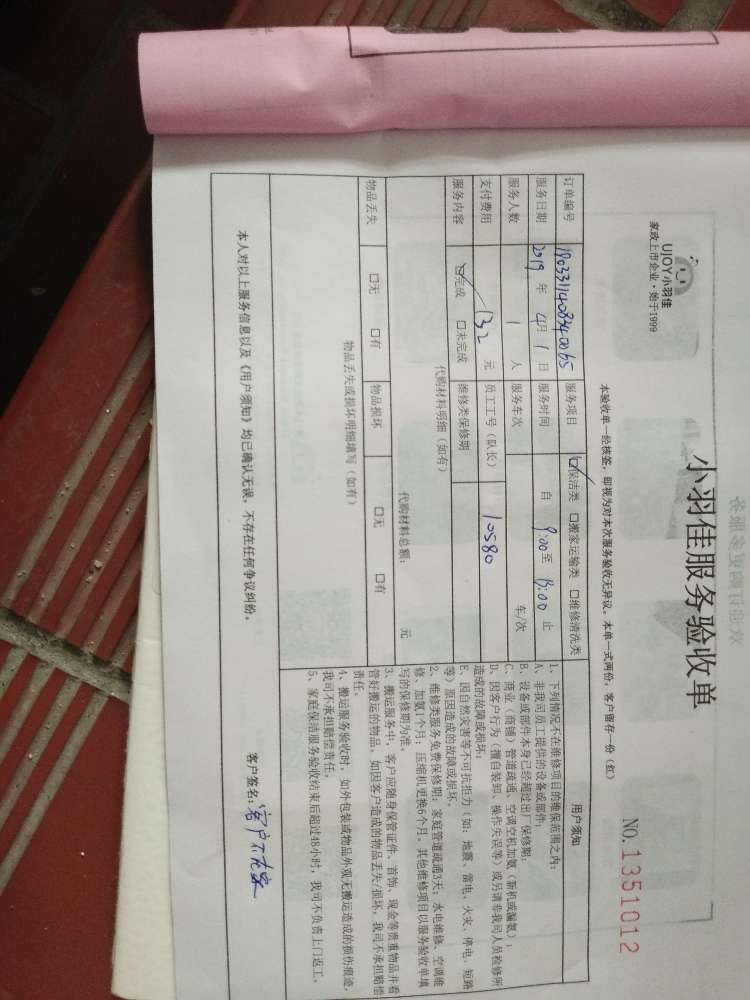 UJOY小羽佳
家政上市企业·始于1999
小羽佳服务验收单
本验收单一经核签，即视为对本次服务验收无异议。本单一式两份，客户留存一份（红）
NO.1351012
订单编号 服务项目 ☑保洁类 □搬家运输类 □维修清洗类
服务日期 2019 年 4月 1 日 服务时间 自 9:00至 13:00 止
服务人数 1 人 服务车次 车/次
支付费用 132 元 员工工号（队长） 10580
服务内容 ☑完成 □未完成 维修类保修期
代购材料明细（如有）
代购材料总额： 元
物品丢失 □无 □有 物品损坏 □无 □有
物品丢失或损坏明细填写（如有）
用户须知
1、下列情况不在维修项目的维保范围之内：
A、非我司员工提供的设备或部件；
B、设备或部件本身已经超过出厂保修期；
C、商业（商铺）管道疏通、空调空机加氨（新机或漏氨）；
D、因客户行为（擅自装卸、操作失误等）或另请非我司人员检修所
造成的故障或损坏；
E、因自然灾害等不可抗拒力（如：地震、雷电、火灾、停电、短路
等）原因造成的故障或损坏。
2、维修类服务免费保修期：家庭管道疏通3天；水电维修、空调维
修、加氨1个月；压缩机更换6个月。其他维修项目以服务验收单填
写的保修期为准。
3、搬运服务中，客户应随身保管证件、首饰、现金等贵重物品并看
管好搬运的物品，如因客户造成的物品丢失/损坏，我司不承担赔偿
责任。
4、搬运服务验收时，如外包装或物品外观无搬运造成的损伤痕迹，
我司不承担赔偿责任。
5、家庭保洁服务验收结束后超过48小时，我司不负责上门返工。
本人对以上服务信息以及《用户须知》均已确认无误，不存在任何争议纠纷。
客户签名：客户不在家